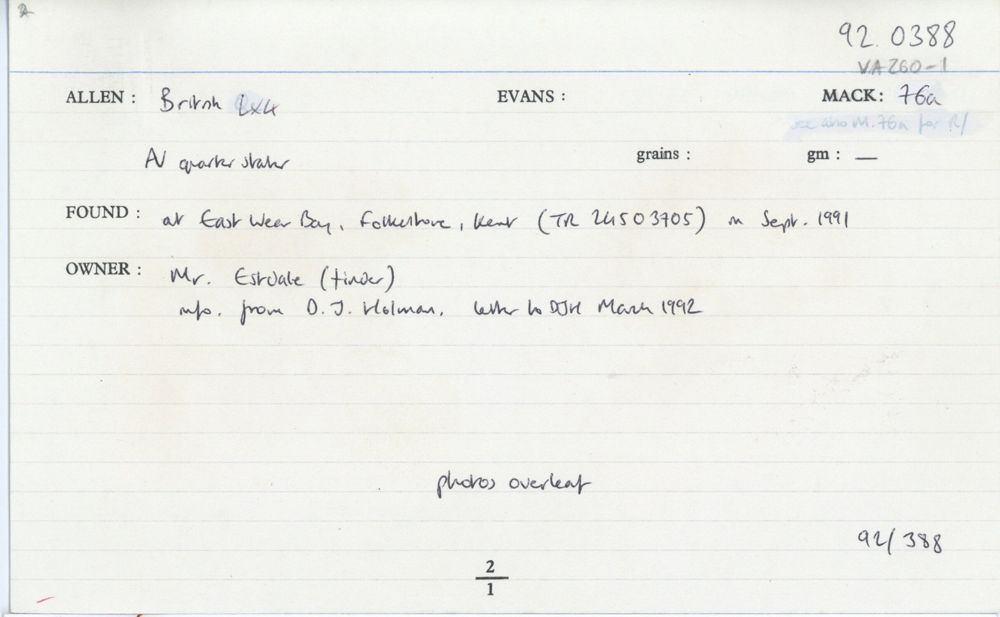 92.0388
VA260-1
ALLEN : British LX4 EVANS : MACK: 76a
see also M.76a for R/
AV quarter stater grains : gm : —
FOUND : at East Wear Bay, Folkestone, Kent (TR 24503705) in Sept. 1991
OWNER : Mr. Estdale (finder)
info. from D.J. Holman, letter to DJH March 1992
photos overleaf
92/388
2
1